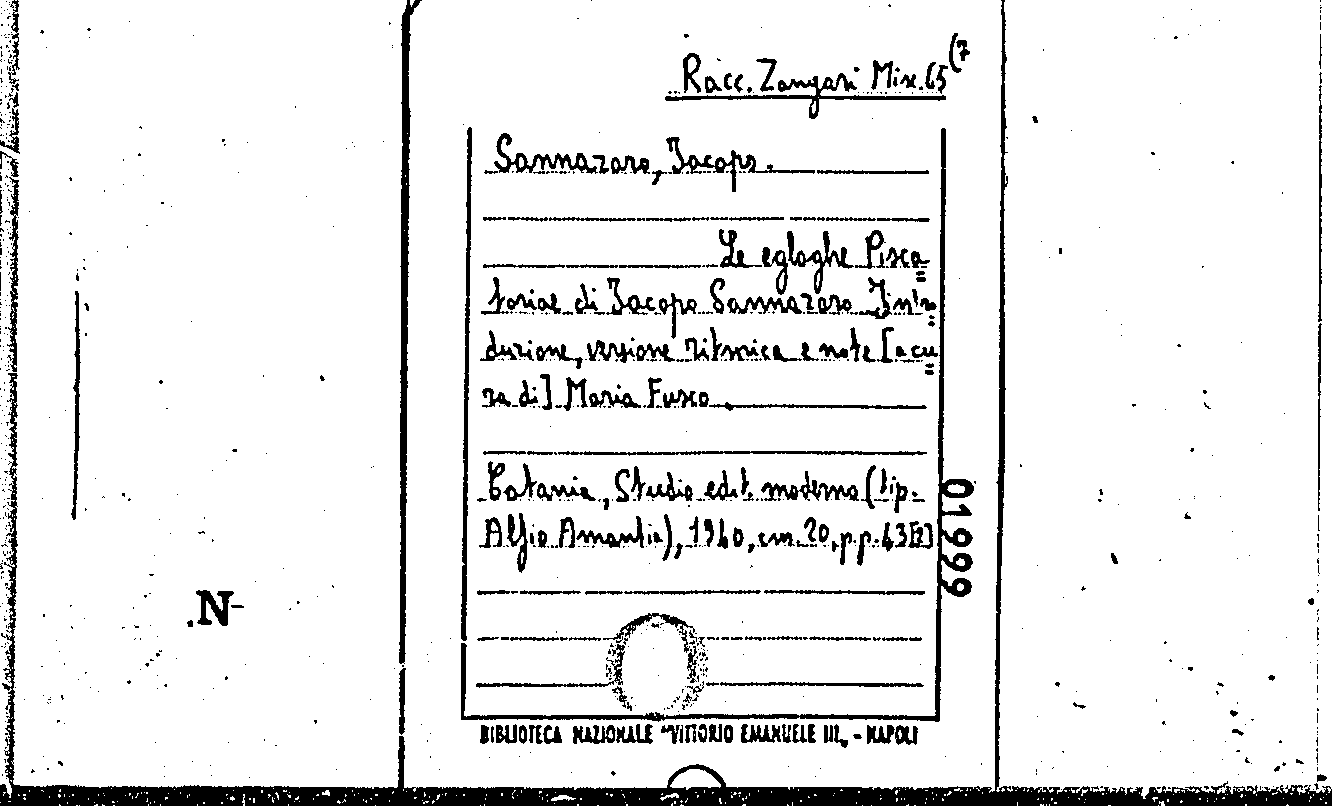 Racc. Zangari Mix. 65 (7
Sannazaro, Jacopo.
Le egloghe Pisca
toriae di Jacopo Sannazaro Intro
duzione, versione ritmica e note [a cu
ra di] Maria Fusco.
Catania, Studio edit. moderno (tip.
Alfio Amantia), 1940, cm. 20, p.p. 43 [2]
01999
.N-
BIBLIOTECA NAZIONALE "VITTORIO EMANUELE III„ - NAPOLI